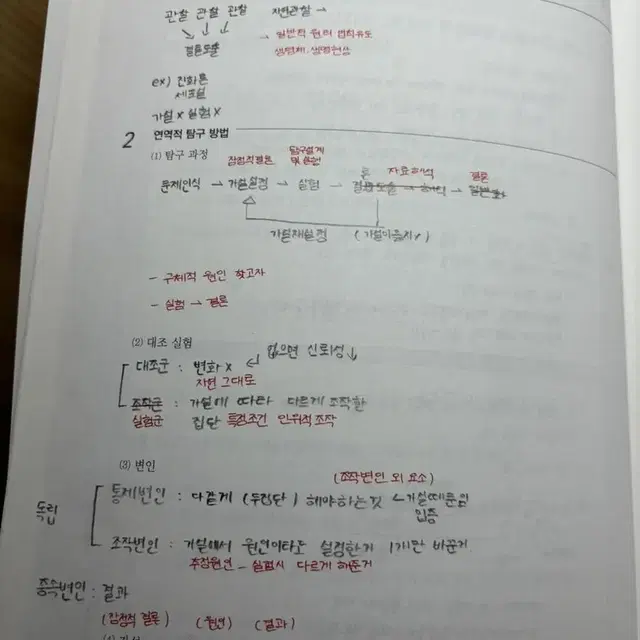 관찰 관찰 관찰 자연관찰 →
↘ ↓ ↓ → 일반적 원리 법칙유도
결론도출 생명체.생명현상
ex) 진화론
세포설
가설 X 실험 X
2 연역적 탐구 방법
(1) 탐구 과정
잠정적결론 탐구설계 및 수행 자료해석 결론
문제인식 → 가설설정 → 실험 →
가설재설정 (가설이 옳지 X)
- 구체적 원인 찾고자
- 실험 → 결론
(2) 대조 실험
없으면 신뢰성↓
대조군 : 변화 X
자연 그대로
조작군 : 가설에 따라 다르게 조작한
실험군 집단 특정조건 인위적 조작
(3) 변인
(조작변인 외 요소)
독립 통제변인 : 다같게 (두집단) 해야하는것
입증
조작변인 : 가설에서 원인이라고 설정한거 1개만 바꾼거
추정원인 - 실험시 다르게 해준거
종속변인 : 결과
(잠정적 결론) (원인) (결과)